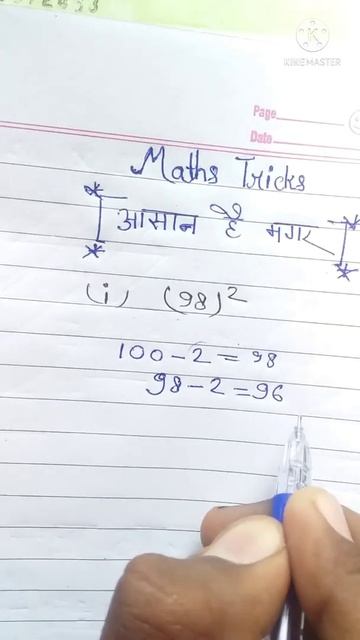 KINEMASTER
Page
Date
Maths Tricks
आसान है मगर
(i) (98)²
100 - 2 = 98
98 - 2 = 96